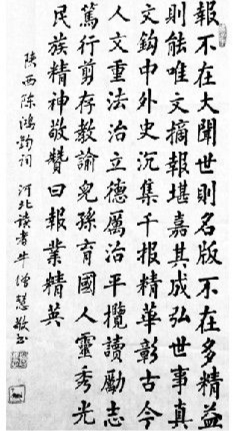 報不在大聞世則名版不在多精益
則能唯文摘報堪嘉其成弘世事真
文鈎中外史沉集千报精華彰古今
人文重法治立德厲治平攬讀勵志
篤行剪存教諭兒孫育國人靈秀光
民族精神敬贊曰報業精英
陝西陳鴻鈞词 河北读者牛僧慧敬书